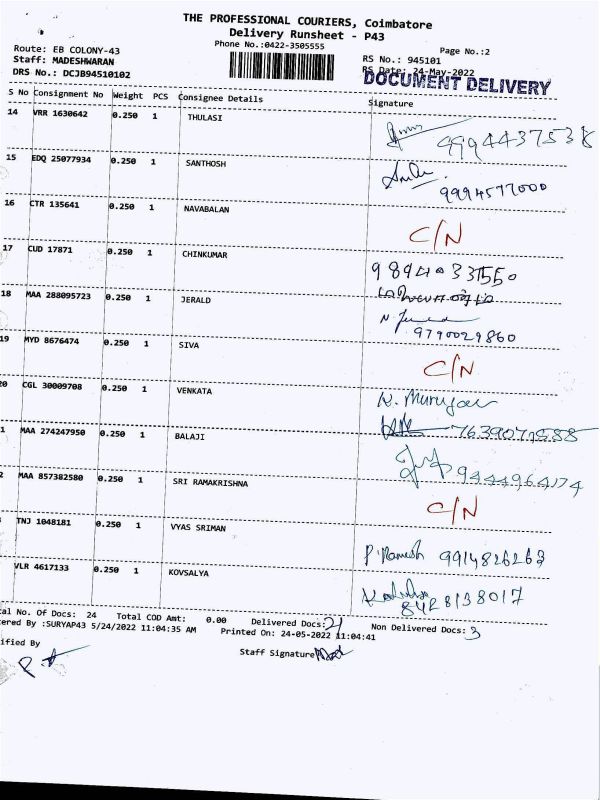 THE PROFESSIONAL COURIERS, Coimbatore
Delivery Runsheet - P43
Phone No.:0422-3505555
Page No.:2
Route: EB COLONY-43
RS No.: 945101
Staff: MADESHWARAN
RS Date: 24-May-2022
DRS No.: DCJB94510102
DOCUMENT DELIVERY
S No Consignment No Weight PCS Consignee Details Signature
14 VRR 1630642 0.250 1 THULASI
9994437538
15 EDQ 25077934 0.250 1 SANTHOSH
9994577000
16 CTR 135641 0.250 1 NAVABALAN
C/N
17 CUD 17871 0.250 1 CHINKUMAR
18 MAA 288095723 0.250 1 JERALD
9790029860
19 MYD 8676474 0.250 1 SIVA
C/N
20 CGL 30009708 0.250 1 VENKATA
K. Murugan
1 MAA 274247950 0.250 1 BALAJI
9444964174
2 MAA 857382580 0.250 1 SRI RAMAKRISHNA
C/N
TNJ 1048181 0.250 1 VYAS SRIMAN
P. Ramesh 9914826263
VLR 4617133 0.250 1 KOVSALYA
8428138017
tal No. Of Docs: 24 Total COD Amt: 0.00 Delivered Docs: 21 Non Delivered Docs: 3
tered By :SURYAP43 5/24/2022 11:04:35 AM Printed On: 24-05-2022 11:04:41
ified By
Staff Signature